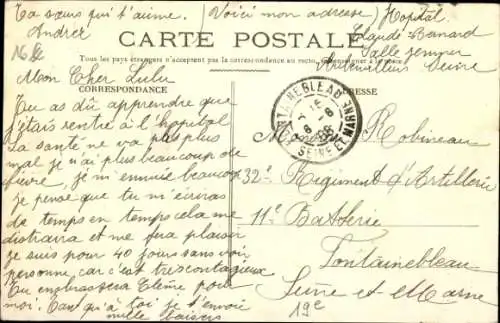 Ta sœur qui t'aime.
Andrée
(Voici mon adresse) Hopital
Claude-Bernard
Salle Jenner
Aubervilliers Seine
CARTE POSTALE
Tous les pays étrangers n'acceptent pas la correspondance au recto, se renseigner à la poste
CORRESPONDANCE
ADRESSE
Mon Cher Lulu
Tu as dû apprendre que
j'étais rentré à l'hopital
ma santé ne va pas plus
mal je n'ai plus beaucoup de
fièvre, je m'ennuie beaucoup
je pense que tu m'écriras
de temps en temps cela me
distraira et me fera plaisir
je suis pour 40 jours sans voir
personne, car c'est tres contagieux
Tu embrasseras Etème pour
moi. Tant qu'à toi je t'envoie
mille baisers
FONTAINEBLEAU
SEINE ET MARNE
M Robineau
32e Regiment d'Artillerie
11e Batterie
Fontainebleau
Seine-et-Marne
19e